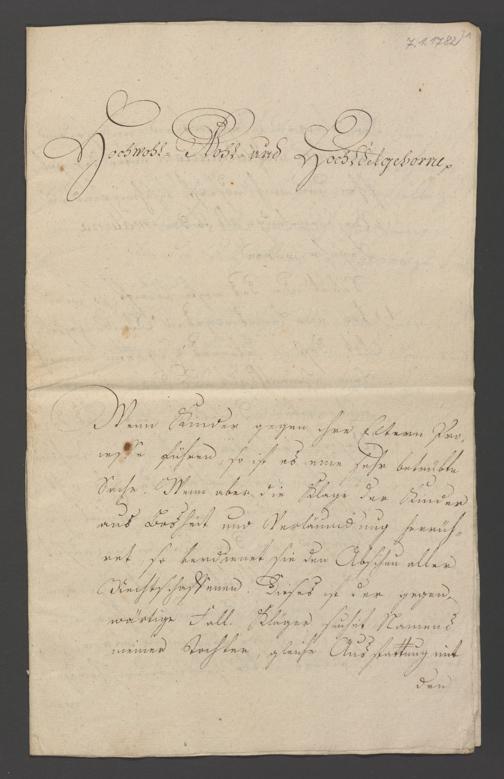 7.1.1782
Hochwohl- Wohl- und Hochedelgeborne,
Wenn Kinder gegen ihre Eltern Pro-
cesse führen, so ist es eine sehr betrübte
Sache. Wenn aber die Klage der Kinder
aus Bosheit und Verläumdung herrüh-
ret, so verdienet sie den Abscheu aller
Rechtschaffenen. Dieses ist der gegen-
wärtige Fall. Kläger suchet Namens
meiner Tochter, gleiche Ausstattung mit
den